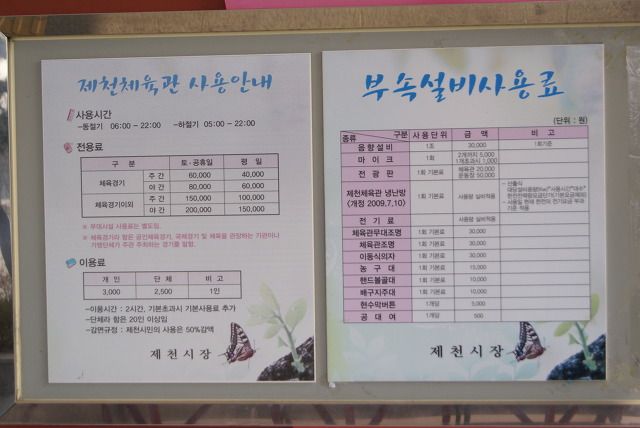 제천체육관 사용안내
사용시간
-동절기 06:00 ~ 22:00 -하절기 05:00 ~ 22:00
전용료
구 분 토·공휴일 평 일
체육경기 주 간 60,000 40,000
야 간 80,000 60,000
체육경기이외 주 간 150,000 100,000
야 간 200,000 150,000
※ 부대시설 사용료는 별도임.
※ 체육경기라 함은 공인체육경기, 국제경기 및 체육을 관장하는 기관이나
가맹단체가 주관 주최하는 경기를 말함.
이용료
개 인 단 체 비 고
3,000 2,500 1인
-이용시간 : 2시간, 기본초과시 기본사용료 추가
-단체라 함은 20인 이상임
-감면규정 : 제천시민의 사용은 50%감액
제 천 시 장
부속설비사용료
(단위 : 원)
종류 구분 사용단위 금 액 비 고
음향설비 1조 30,000 1회기준
마 이 크 1회 2개까지 5,000
1개초과시 1,000
전 광 판 1회 기본료 체육관 20,000
운동장 50,000
제천체육관 냉난방
(개정 2009.7.10) 1회 기본료 사용량 실비적용
- 산출식
- 사용일 현재 한전의 전기요금 부과
기준 적용
전 기 료 사용량 실비적용
체육관무대조명 1회 기본료 30,000
체육관조명 1회 기본료 30,000
이동식의자 1회 기본료 30,000
농 구 대 1회 기본료 15,000
핸드볼골대 1회 기본료 10,000
배구지주대 1회 기본료 10,000
현수막버튼 1개당 5,000
공 대 여 1개당 500
제 천 시 장